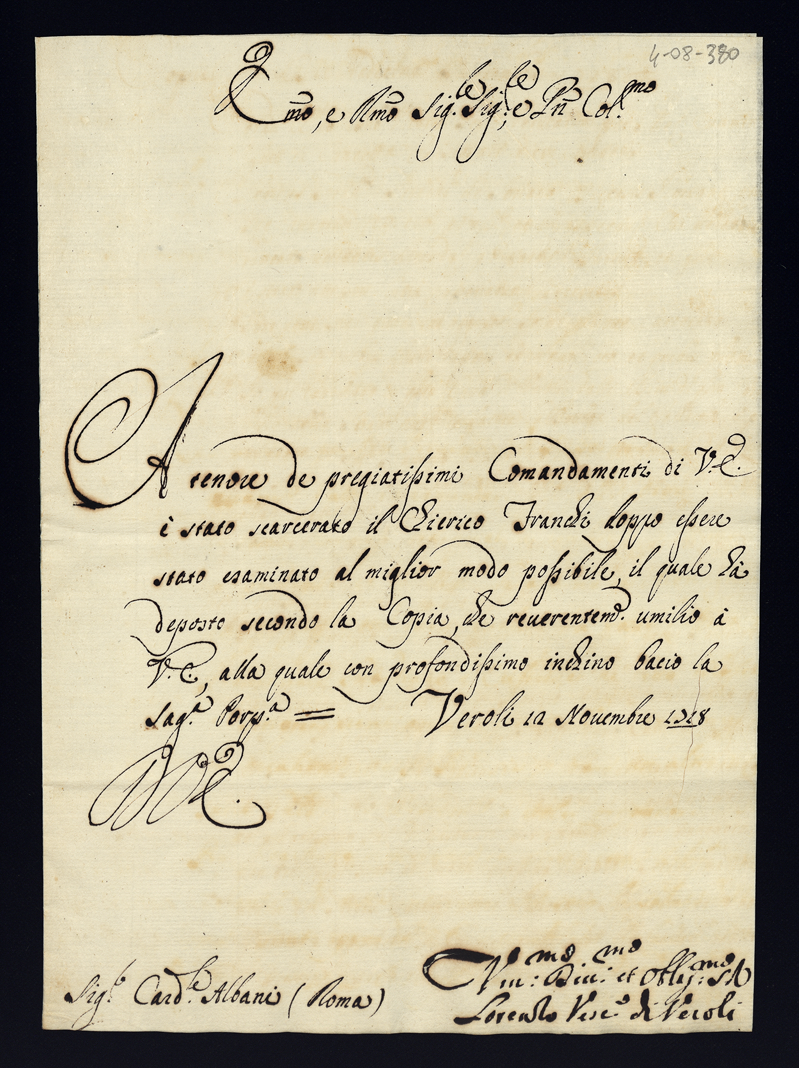 4-08-380
Emo, e Rmo Sig.le Sig.le, e Pñ Col.mo
A tenore de pregiatissimi Comandamenti di V.E.
è stato scarcerato il Chierico Franchi doppo essere
stato esaminato al miglior modo possibile, il quale hà
deposto secondo la Copia, che reverentem.e umilio à
V.E., alla quale con profondissimo inchino bacio la
Sag.a Porp.a = Veroli 12 Novembre 1718
D V E.
Sig.r Card.le Albani (Roma)
Um.mo Div.mo et Obbg.mo S.re
Lorenzo Vesc.o di Veroli